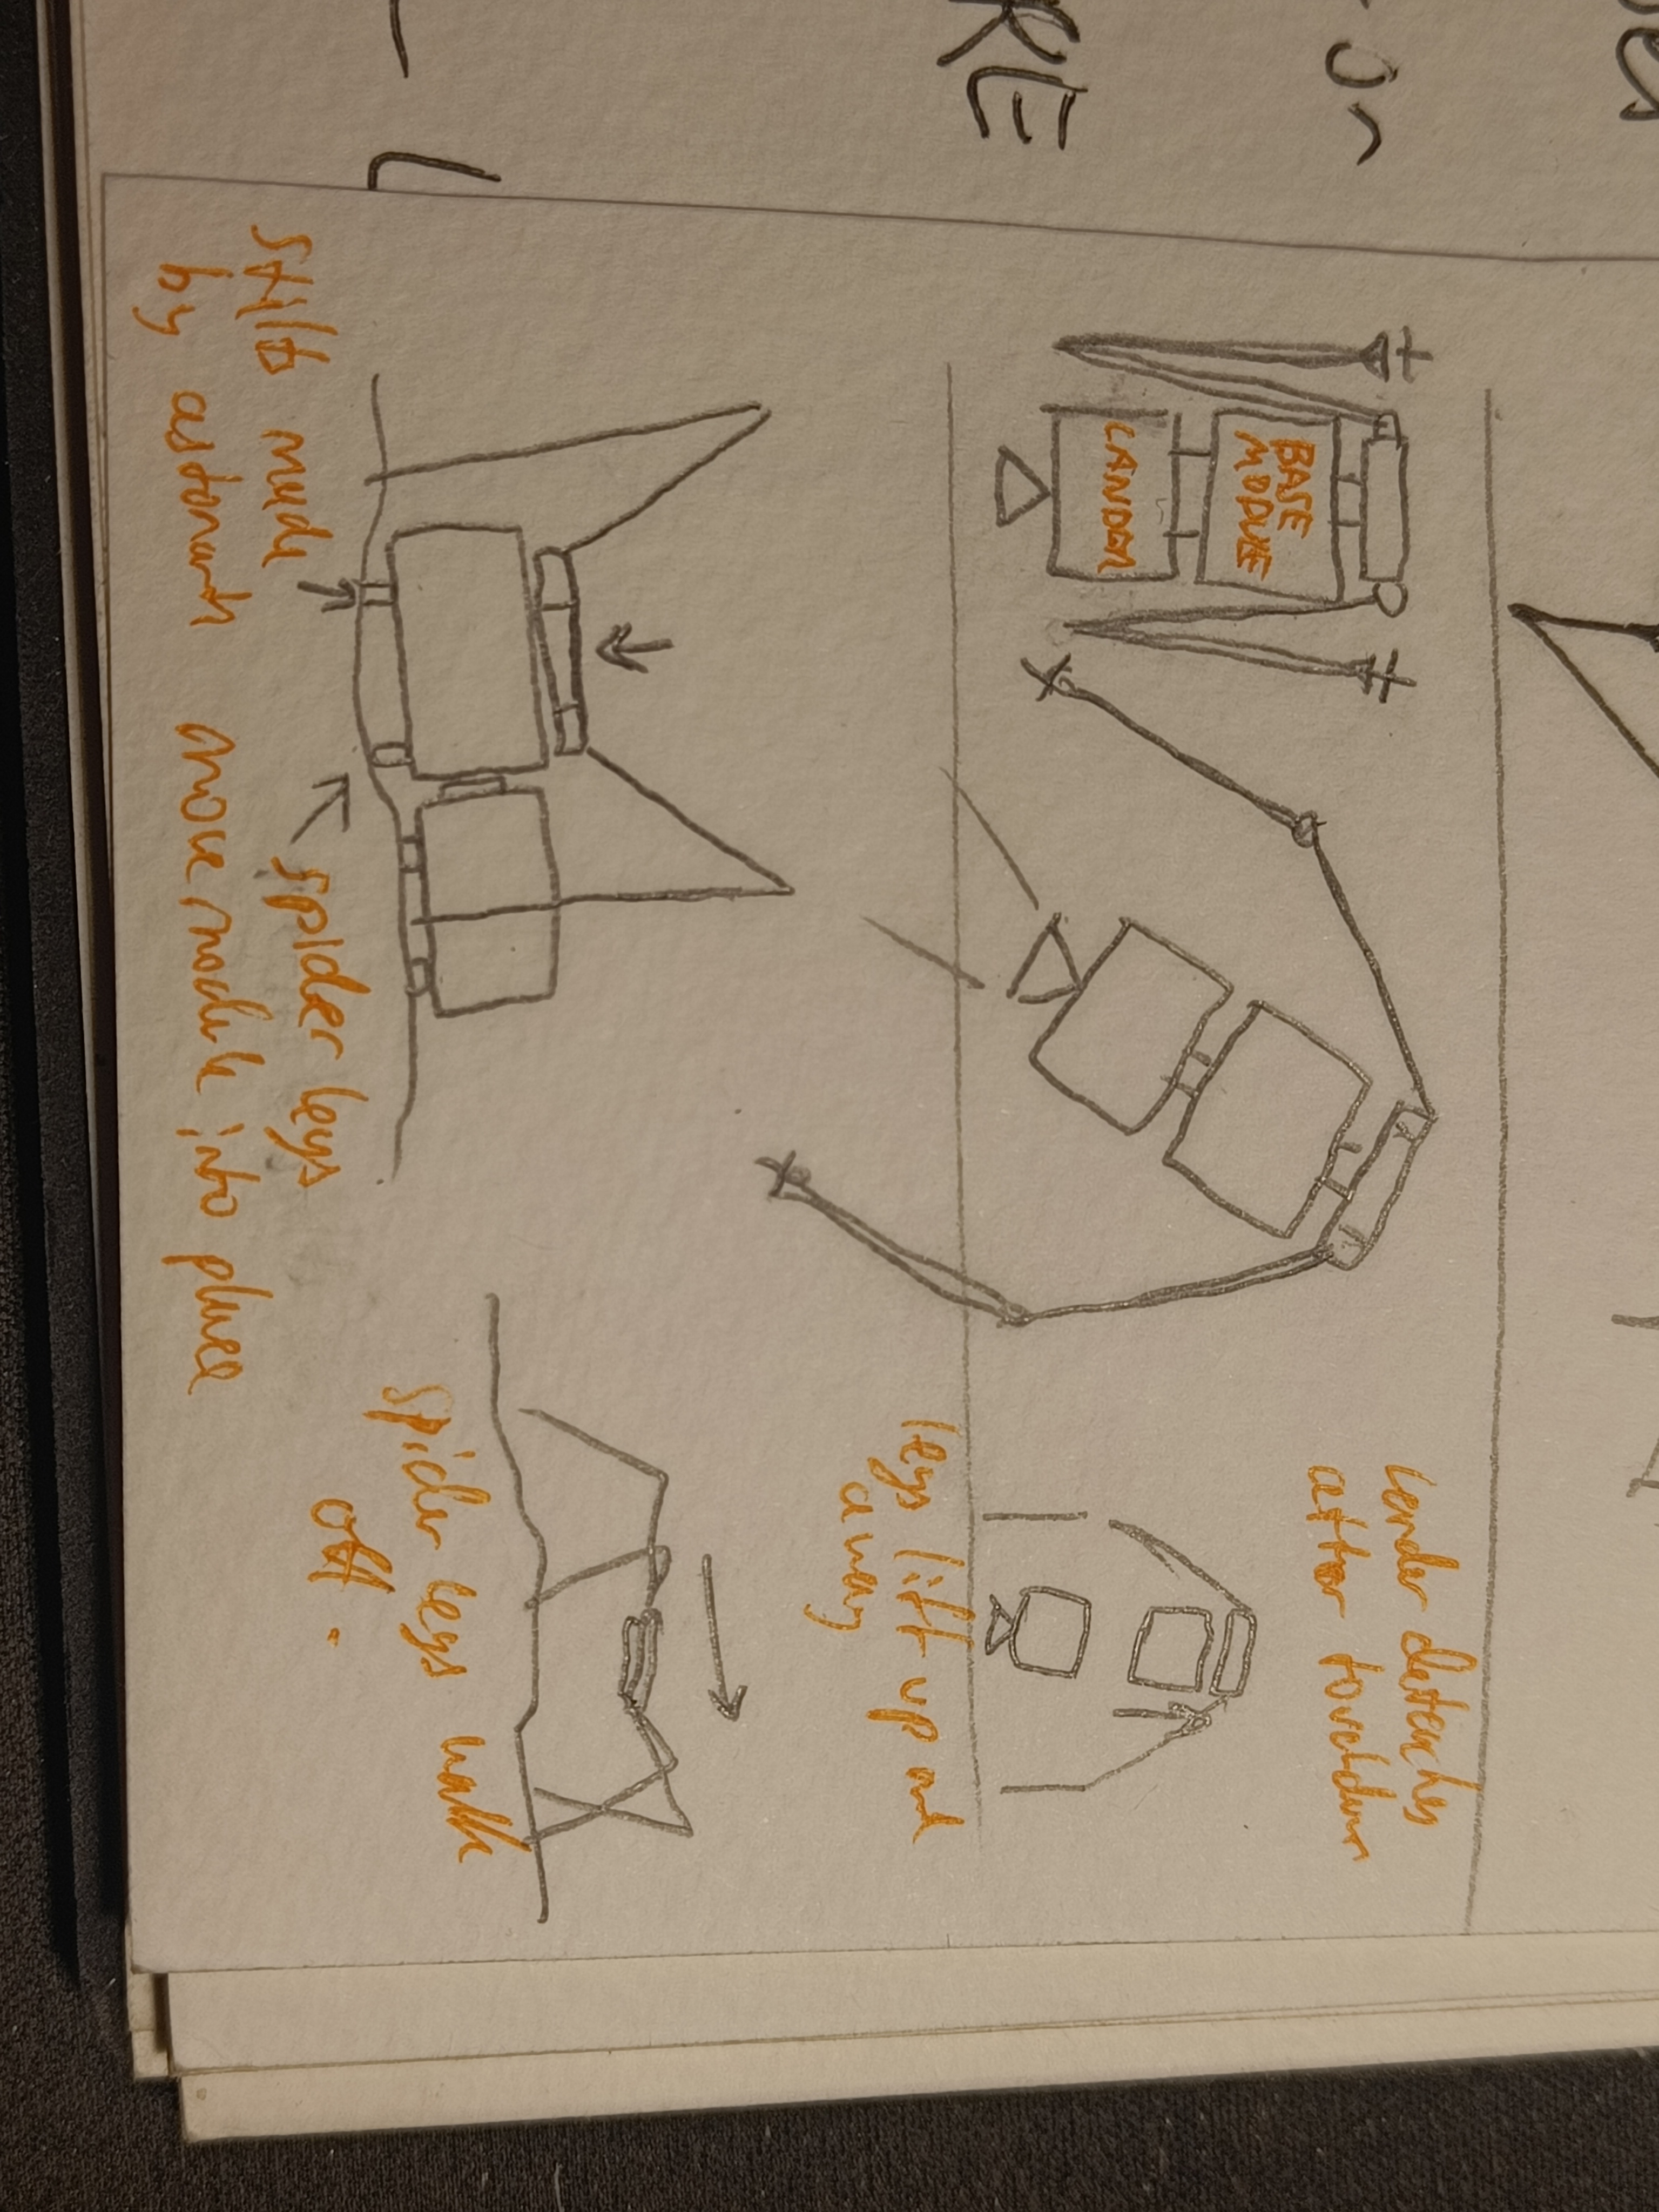 BASE
MODULE
LANDER
lander detaches
after touchdown
legs lift up and
away
stilts made
by astronauts
spider legs
move module into place
spider legs walk
off.